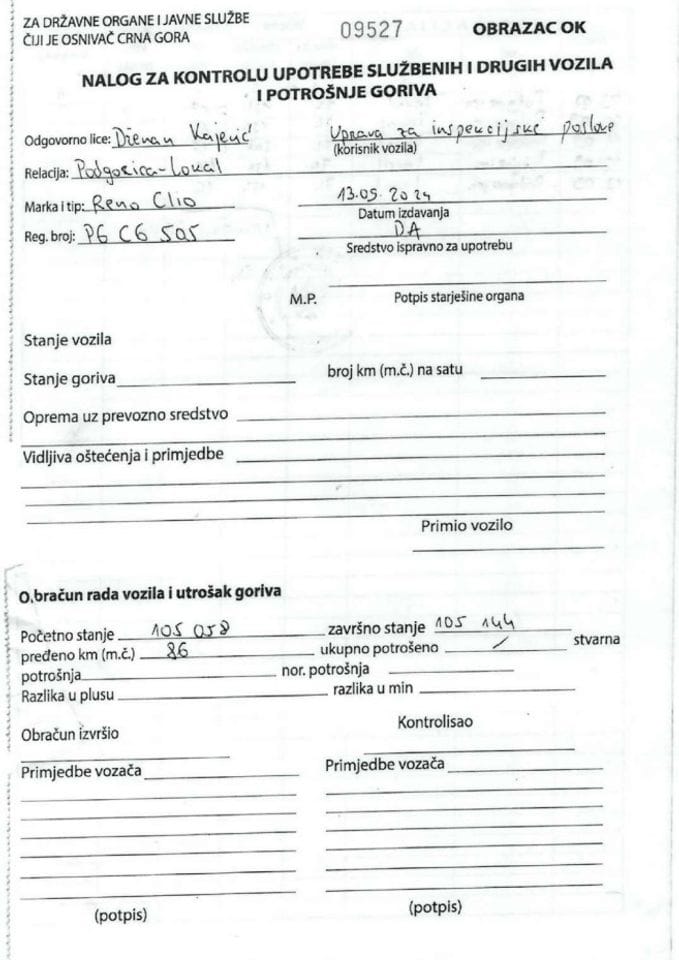 ZA DRŽAVNE ORGANE I JAVNE SLUŽBE
ČIJI JE OSNIVAČ CRNA GORA
09527
OBRAZAC OK
NALOG ZA KONTROLU UPOTREBE SLUŽBENIH I DRUGIH VOZILA
I POTROŠNJE GORIVA
Odgovorno lice: Dženan Kajević
Uprava za inspekcijske poslove
(korisnik vozila)
Relacija: Podgorica-Lokal
Marka i tip: Reno Clio
13.09.2024
Datum izdavanja
Reg. broj: PG CG 505
DA
Sredstvo ispravno za upotrebu
M.P.
Potpis starješine organa
Stanje vozila
Stanje goriva
broj km (m.č.) na satu
Oprema uz prevozno sredstvo
Vidljiva oštećenja i primjedbe
Primio vozilo
Obračun rada vozila i utrošak goriva
Početno stanje 105 058 završno stanje 105 144
pređeno km (m.č.) 86 ukupno potrošeno / stvarna
potrošnja nor. potrošnja
Razlika u plusu razlika u min
Obračun izvršio
Kontrolisao
Primjedbe vozača
Primjedbe vozača
(potpis)
(potpis)